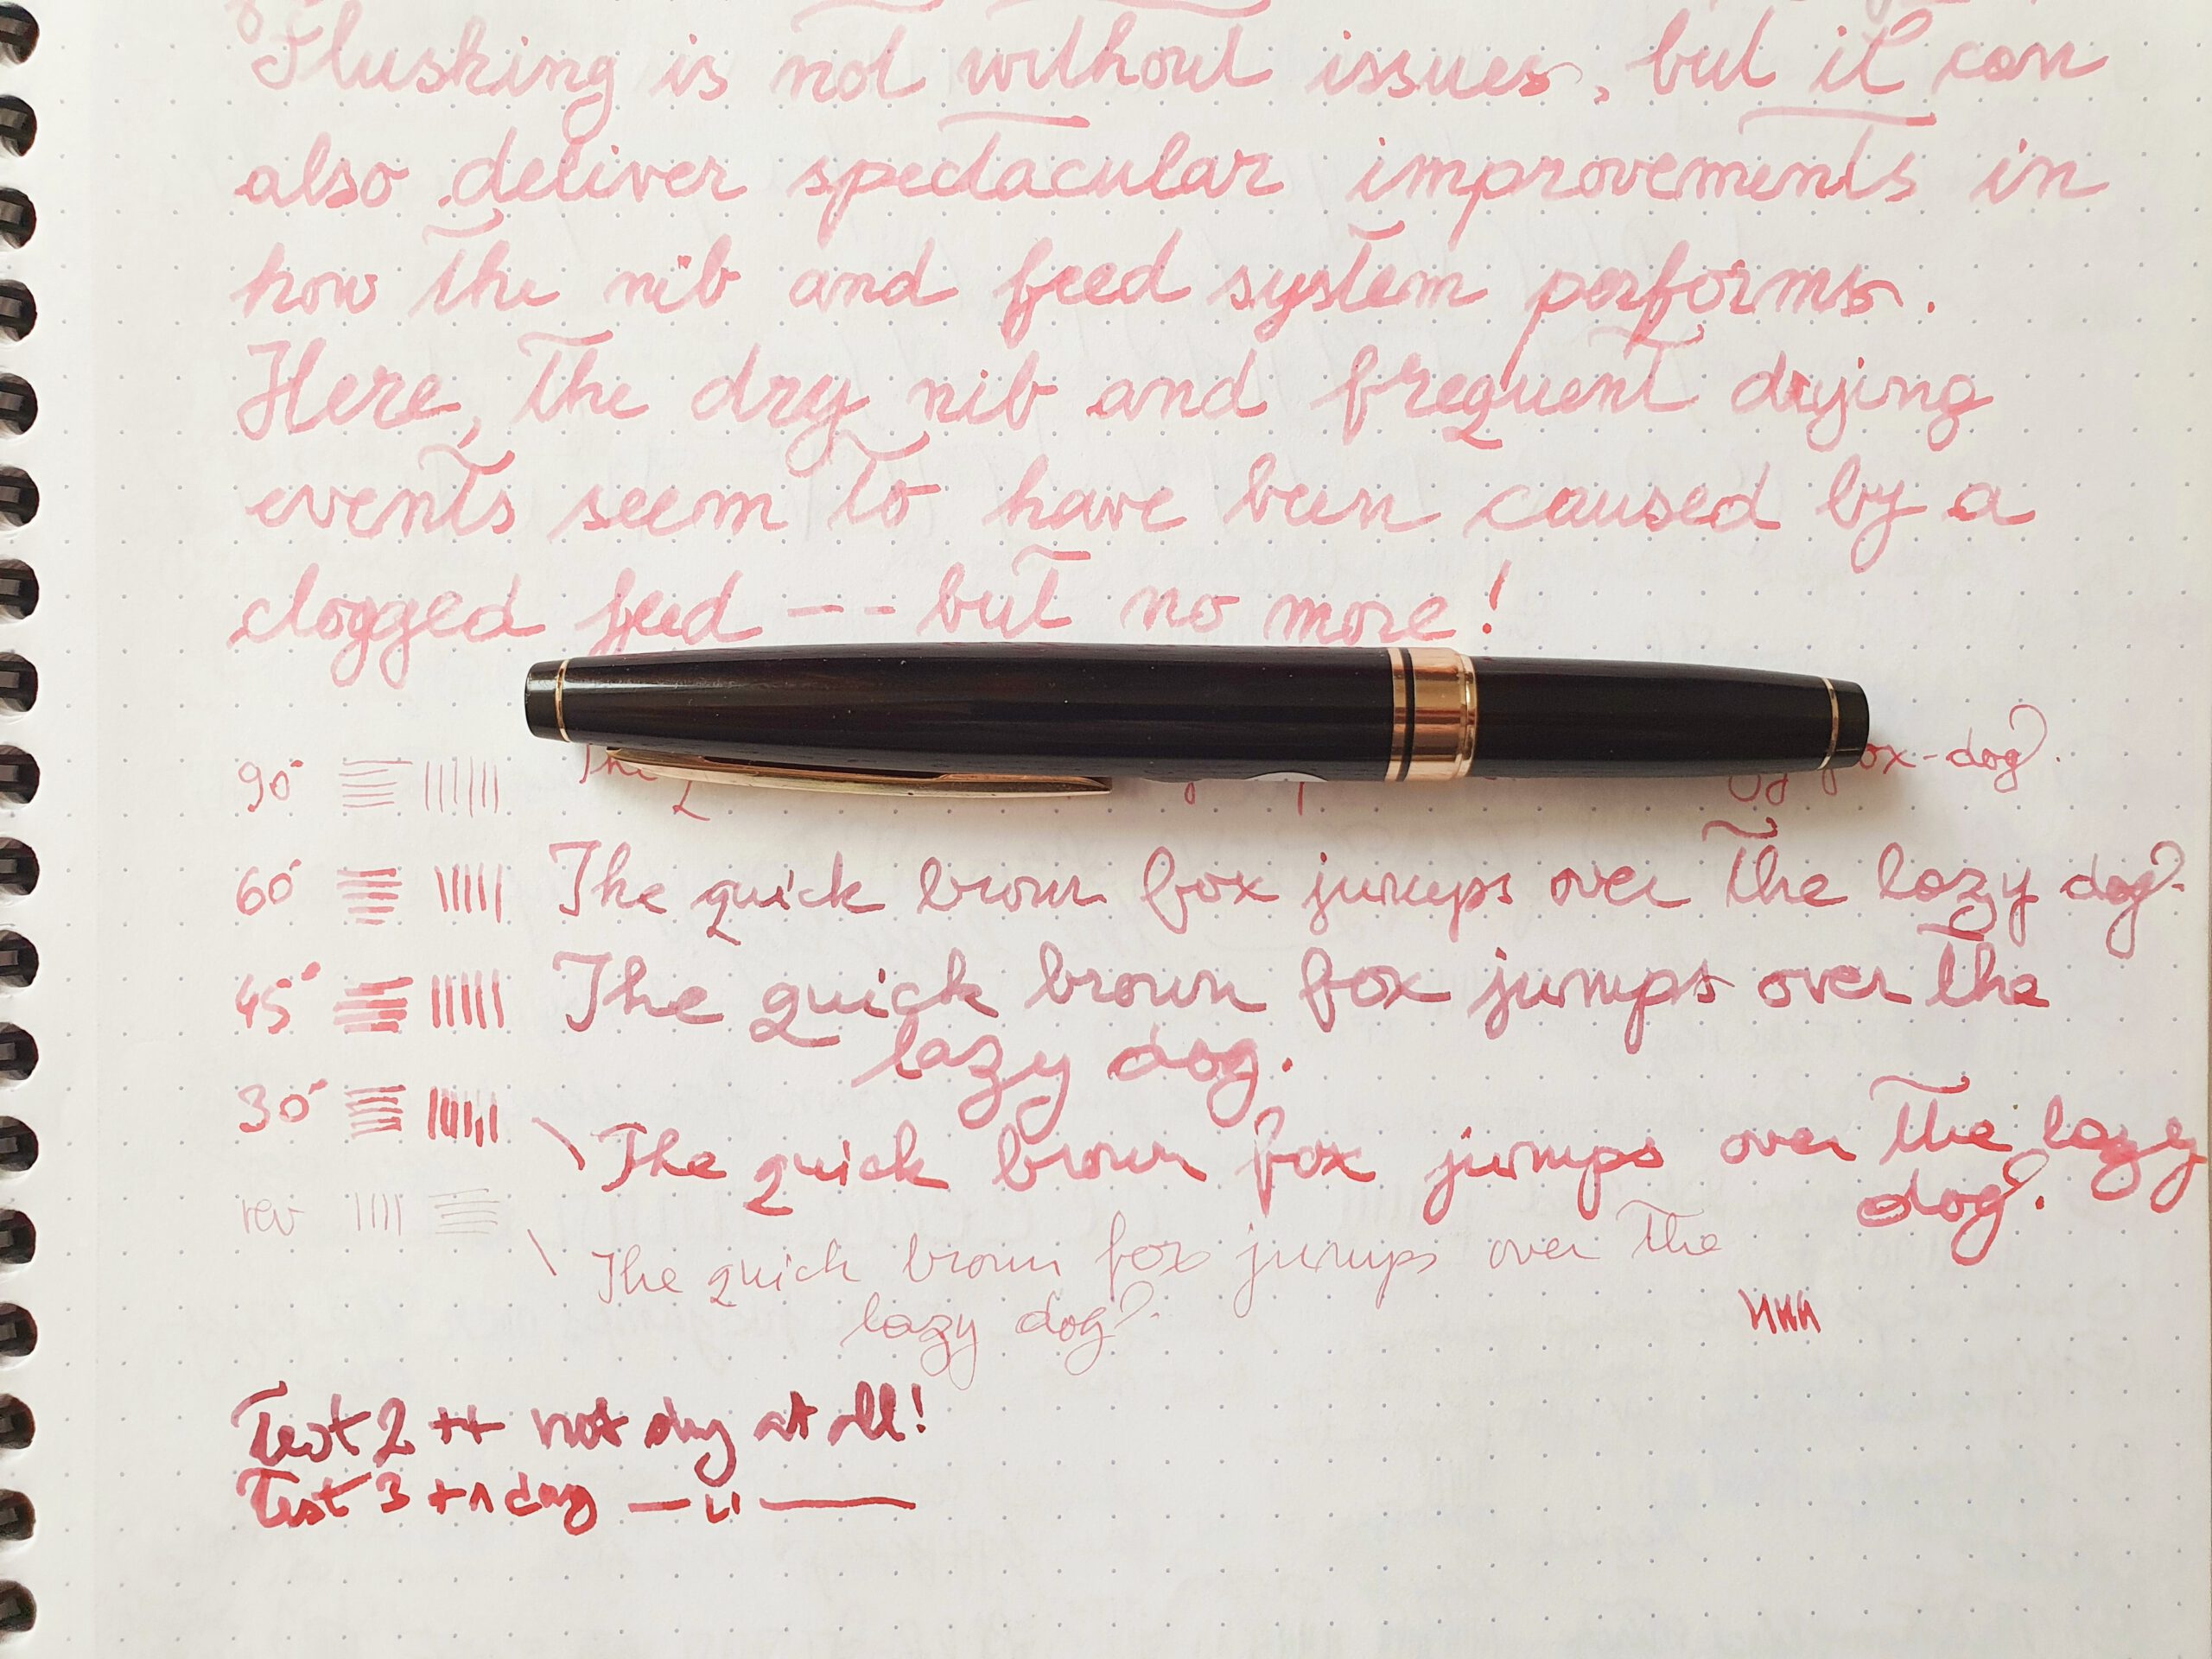 Flushing is not without issues, but it can
also deliver spectacular improvements in
how the nib and feed system performs.
Here, the dry nib and frequent drying
events seem to have been caused by a
clogged feed -- but no more!
90° The ox-dog.
60° The quick brown fox jumps over the lazy dog.
45° The quick brown fox jumps over the
lazy dog.
30° \ The quick brown fox jumps over the lazy
dog.
rev \ The quick brown fox jumps over the
lazy dog.
Test 2 ++ not dry at all!
Test 3 +1 day — 〃 —